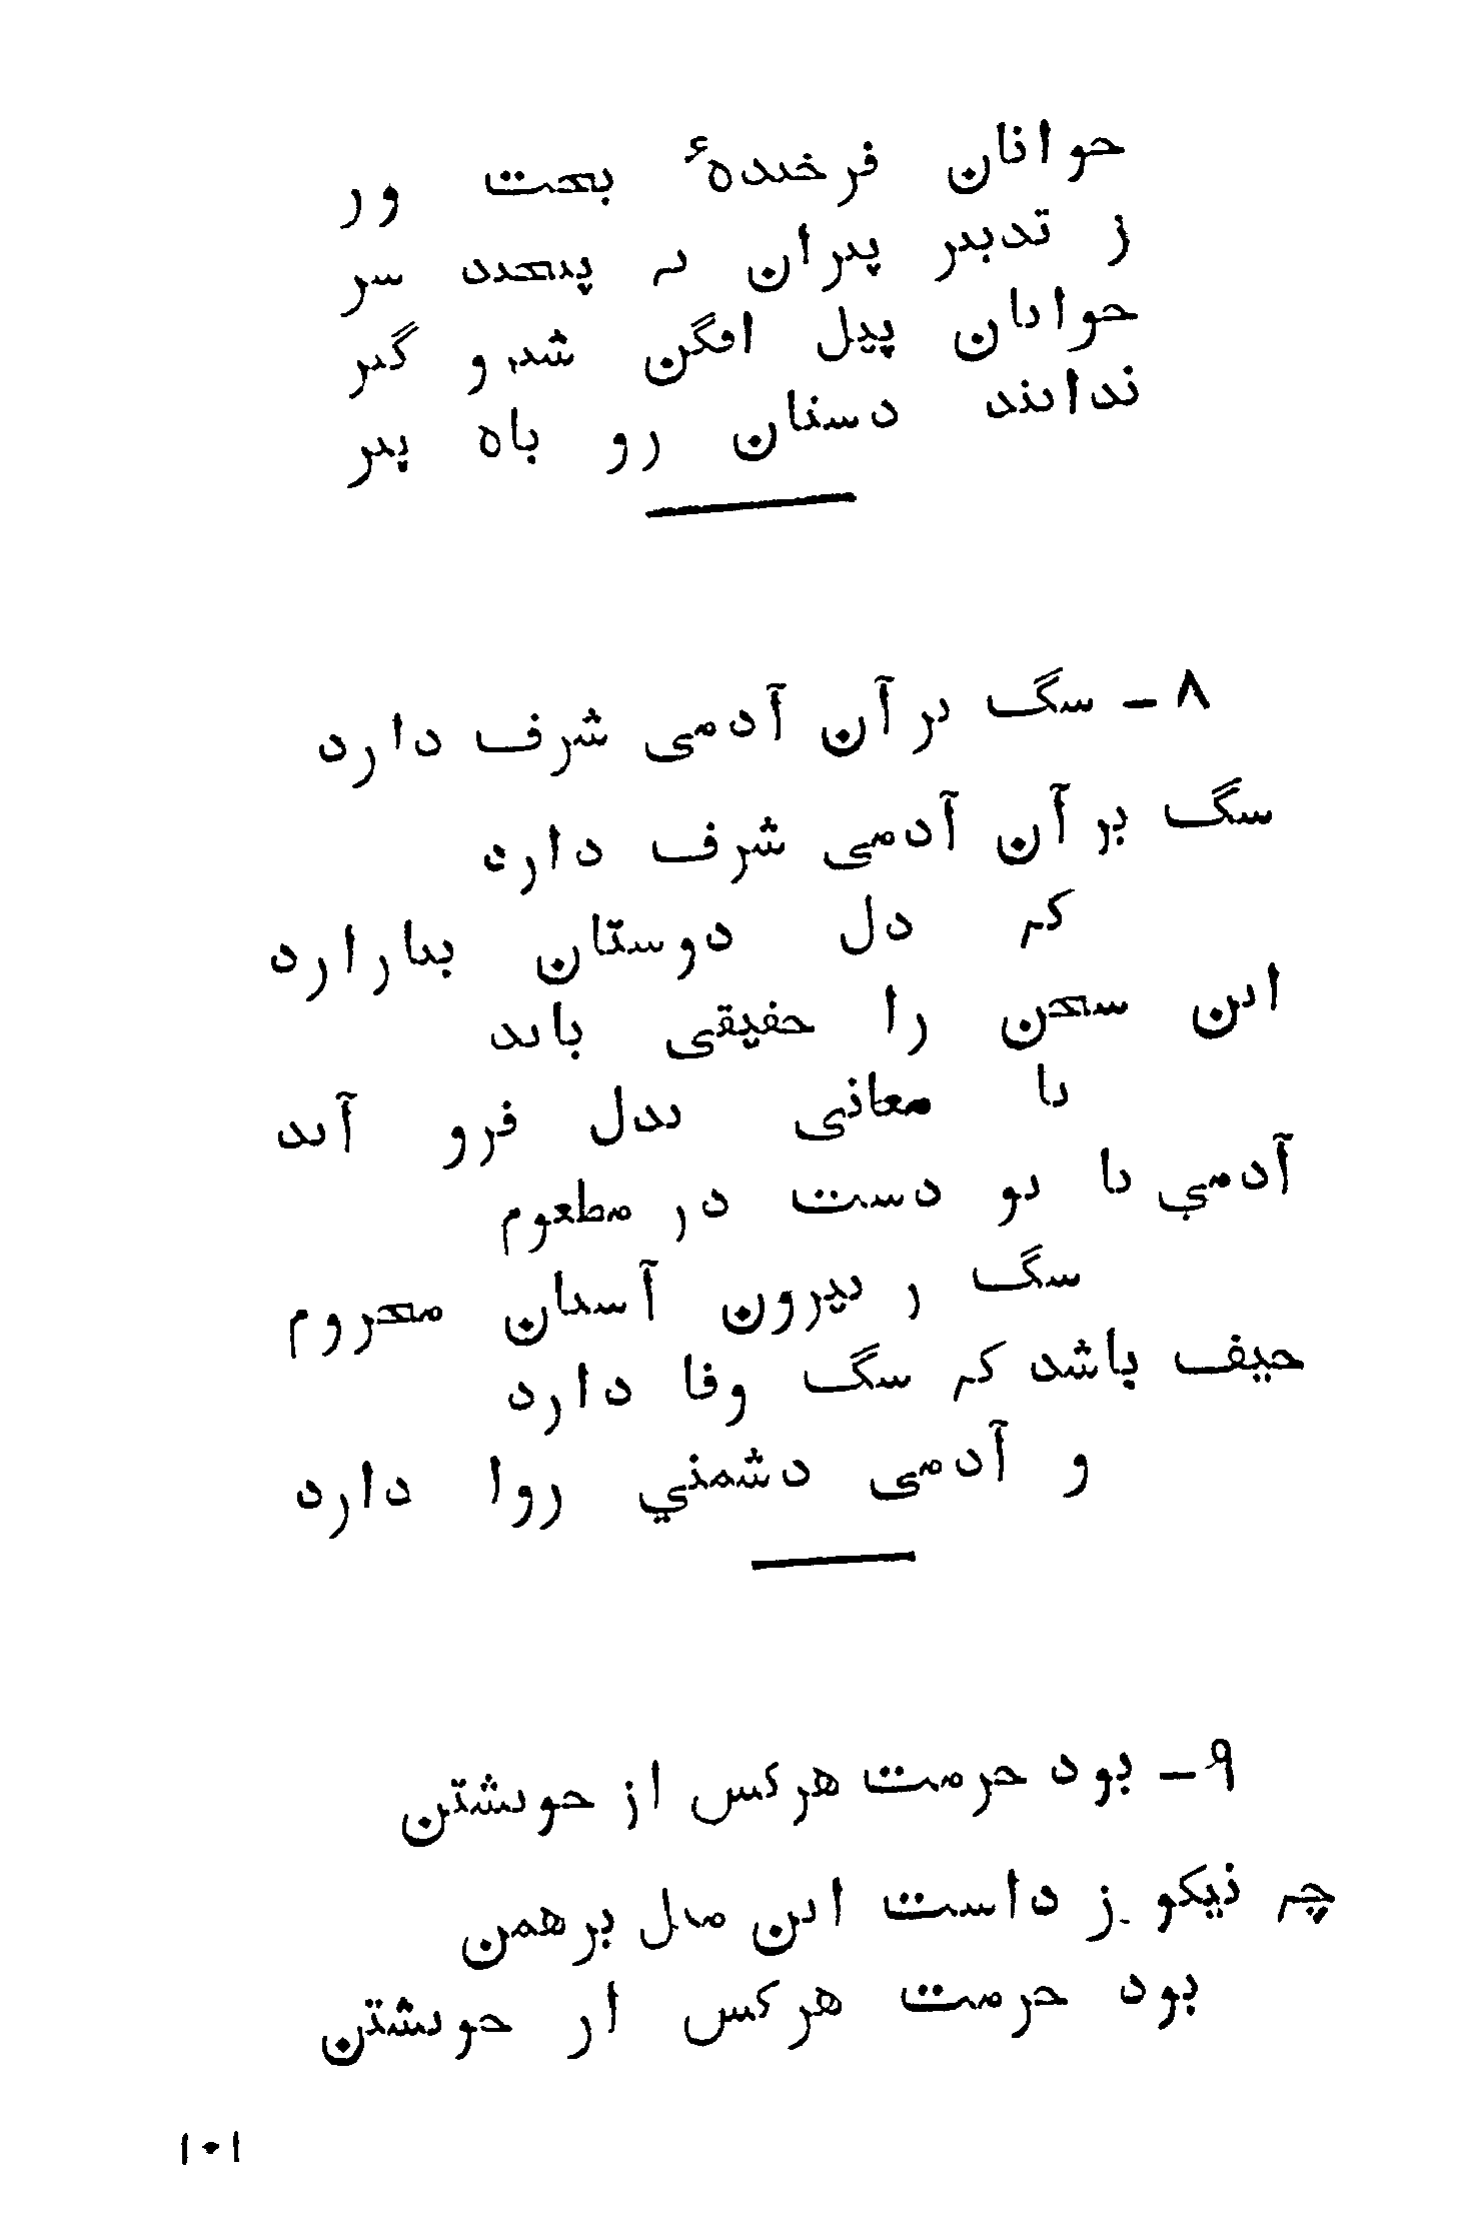 جوانان فرخندهٔ بخت ور
ز تدبیر پیران نه پیچند سر
جوانان پیل افگن شیر و گیر
ندانند دستان رو باه پیر
۸ - سگ بر آن آدمی شرف دارد
سگ بر آن آدمی شرف دارد
که دل دوستان بیازارد
این سخن را حقیقی باید
تا معانی بدل فرو آید
آدمی با تو دست در مطعوم
سگ ز بیرون آستان محروم
حیف باشد که سگ وفا دارد
و آدمی دشمني روا دارد
۹ - بود حرمت هر کس از خویشتن
چه نیکو ز داست این مثل برهمن
بود حرمت هر کس از خویشتن
۱۰۱